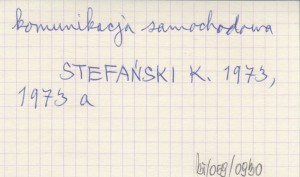 komunikacja samochodowa
STEFAŃSKI K. 1973,
1973 a